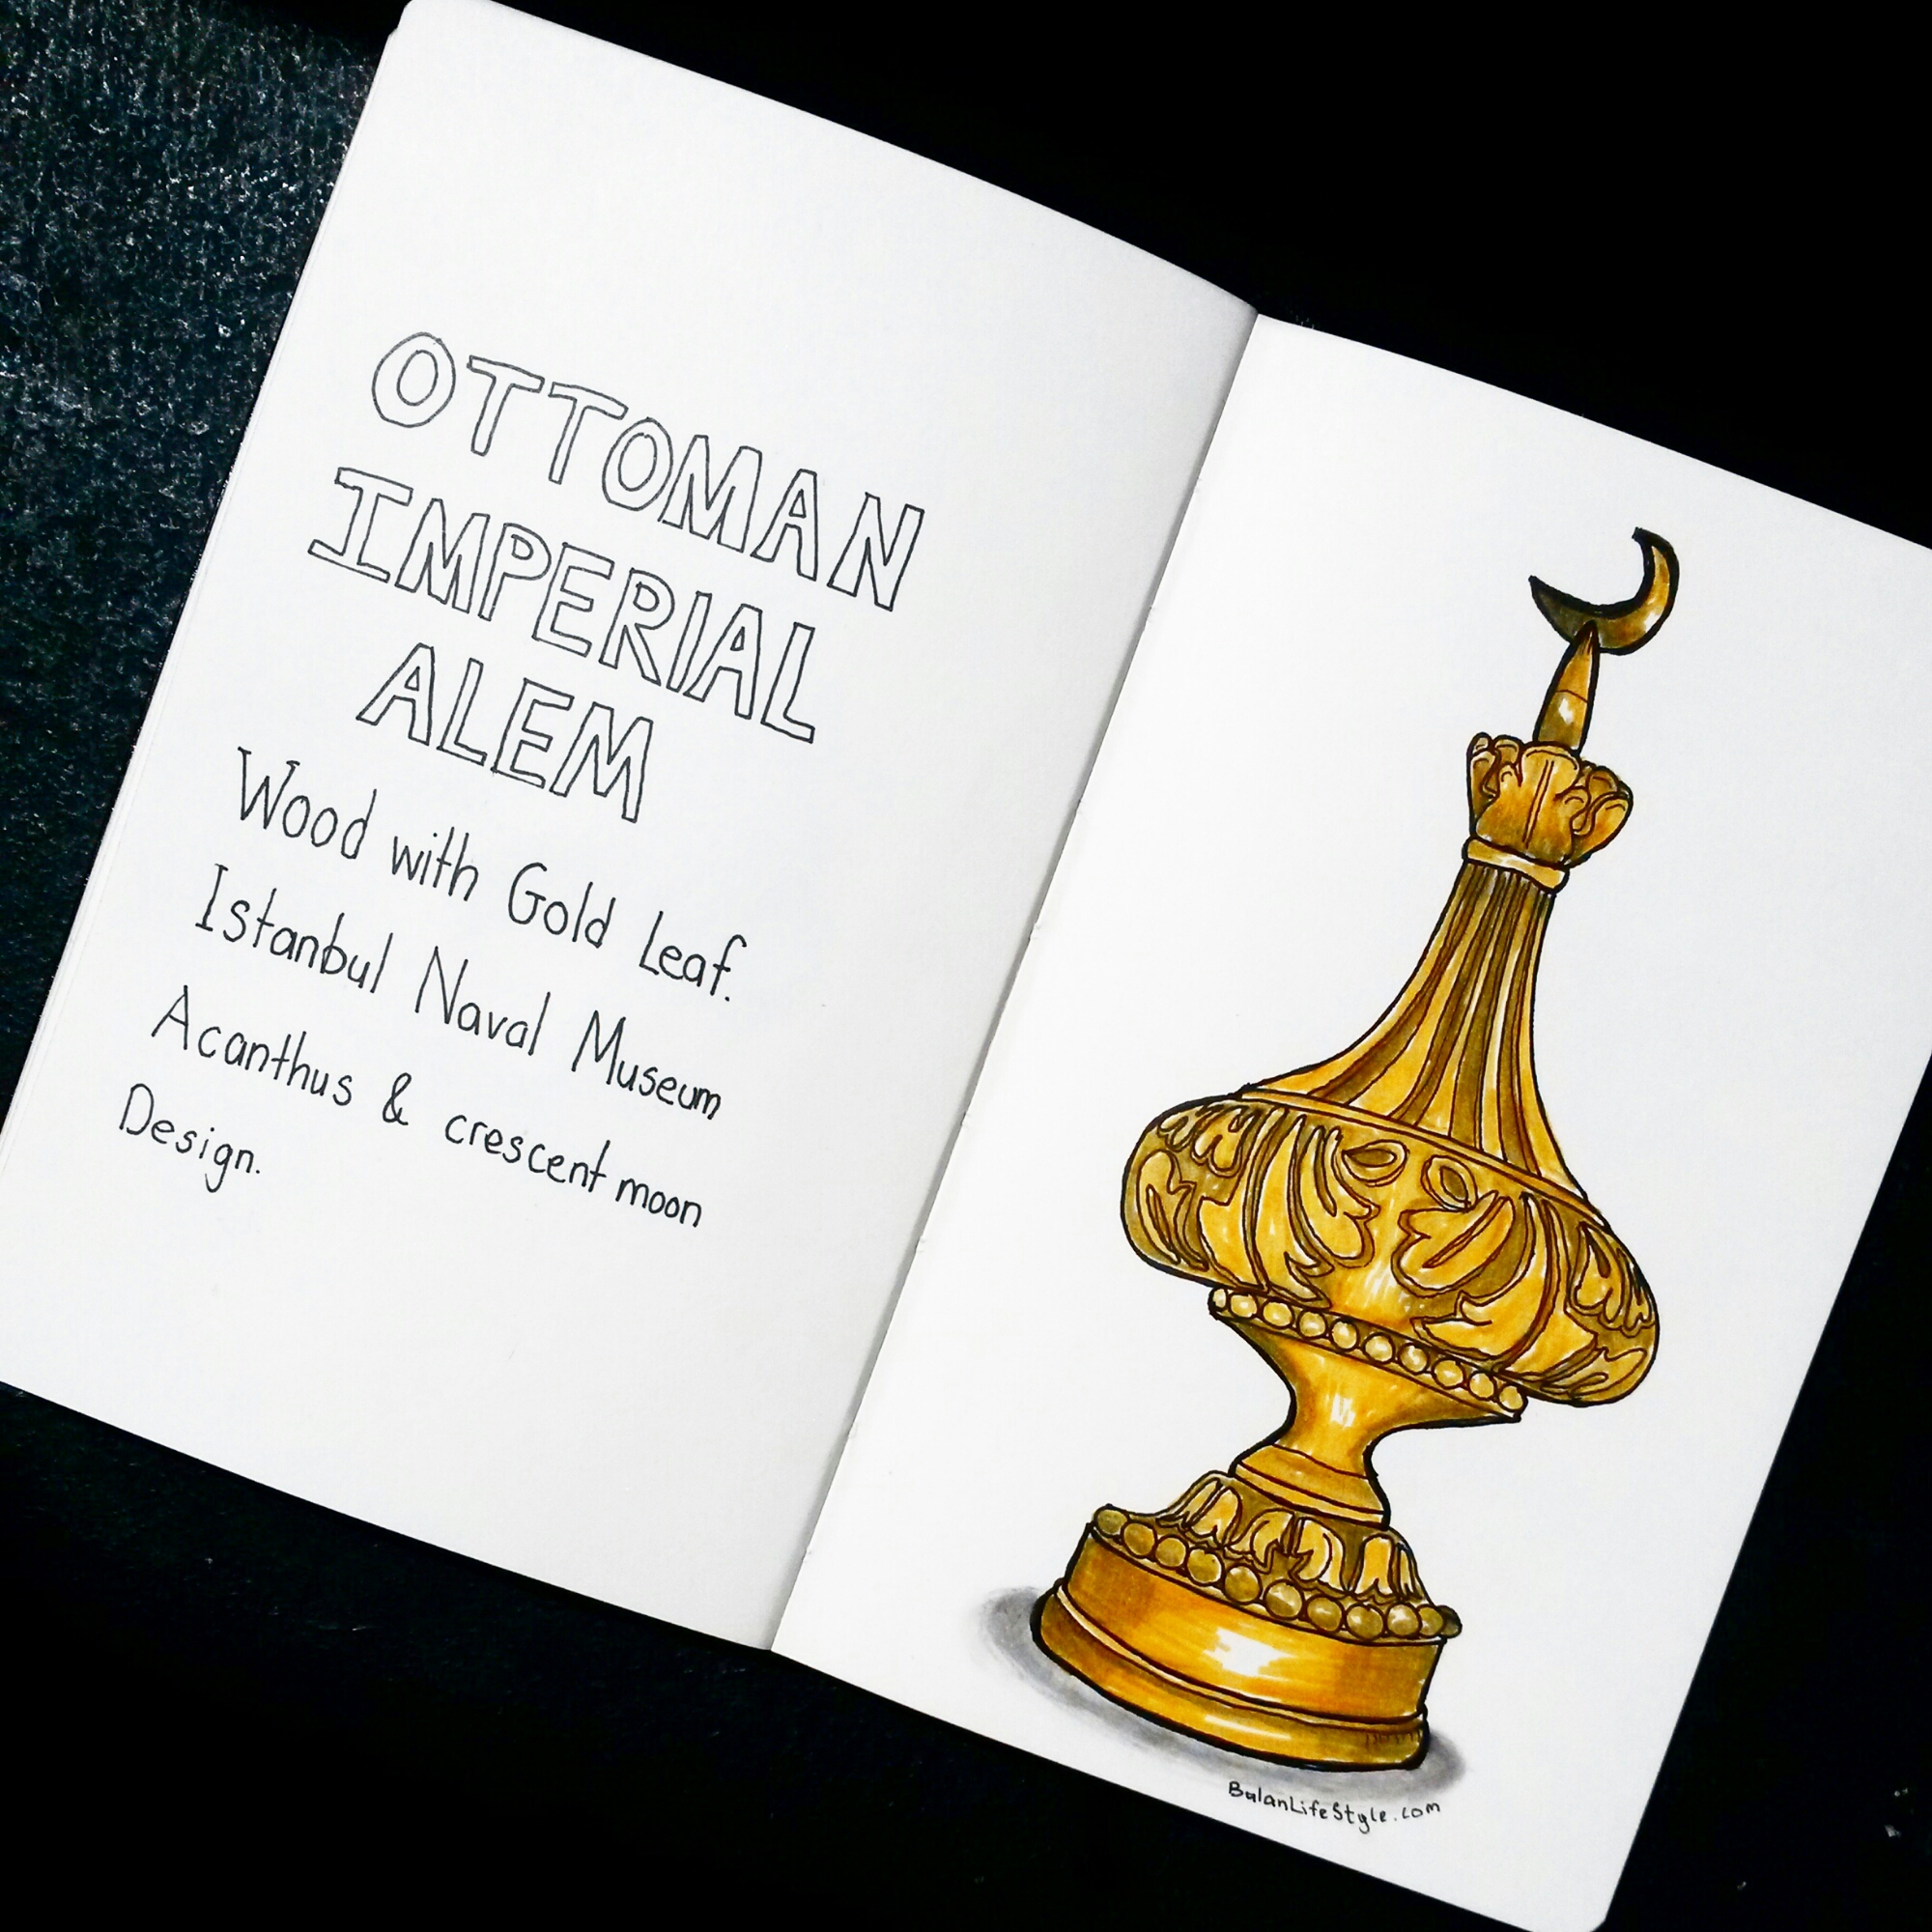 OTTOMAN
IMPERIAL
ALEM
Wood with Gold Leaf.
Istanbul Naval Museum
Acanthus & crescent moon
Design.
BalanLifeStyle.com